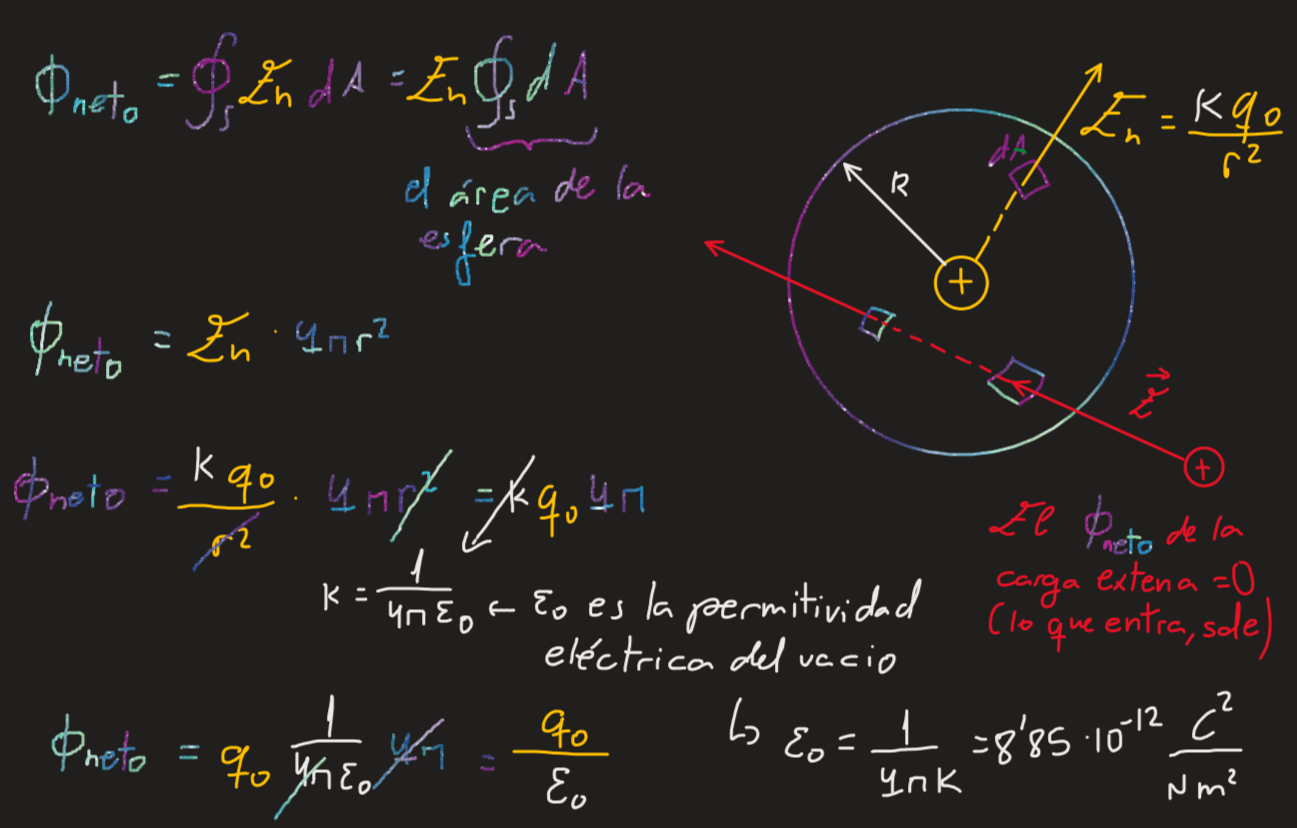 ϕneto = ∮s En dA = En ∮s dA
el área de la
esfera
ϕneto = En · 4πr²
ϕneto = K q0 / r² · 4πr² = K q0 4π
K = 1 / 4πε0 ← ε0 es la permitividad
eléctrica del vacio
ϕneto = q0 1 / 4πε0 4π = q0 / ε0
↳ ε0 = 1 / 4πK = 8'85 · 10⁻¹² C² / N m²
En = K q0 / r²
dA
R
+
E⃗
+
El ϕneto de la
carga extena = 0
(lo que entra, sale)